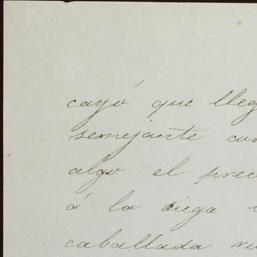 cayó que lleg
semejante con
algo el prec
á la ciega
caballada